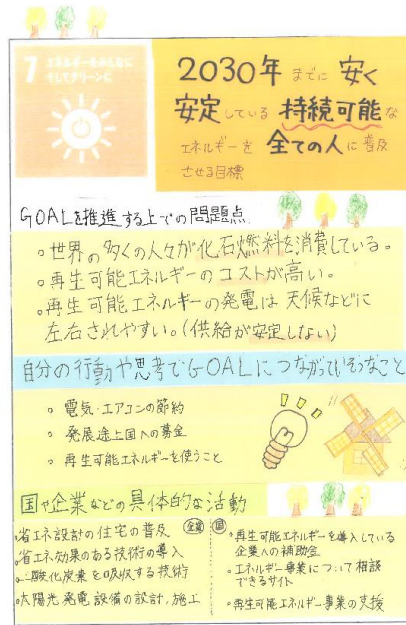 7 エネルギーをみんなに
そしてクリーンに
2030年 までに 安く
安定している 持続可能な
エネルギーを 全ての人に普及
させる目標
GOALを推進する上での問題点
。世界の多くの人々が化石燃料を消費している。
。再生可能エネルギーのコストが高い。
。再生可能エネルギーの発電は天候などに
左右されやすい。(供給が安定しない)
自分の行動や思考でGOALにつながっていそうなこと
。電気・エアコンの節約
。発展途上国への募金
。再生可能エネルギーを使うこと
国や企業などの具体的な活動
企業
。省エネ設計の住宅の普及
。省エネ効果のある技術の導入
。二酸化炭素を吸収する技術
。太陽光発電設備の設計、施工
国
。再生可能エネルギーを導入している
企業への補助金
。エネルギー事業について相談
できるサイト
。再生可能エネルギー事業の支援